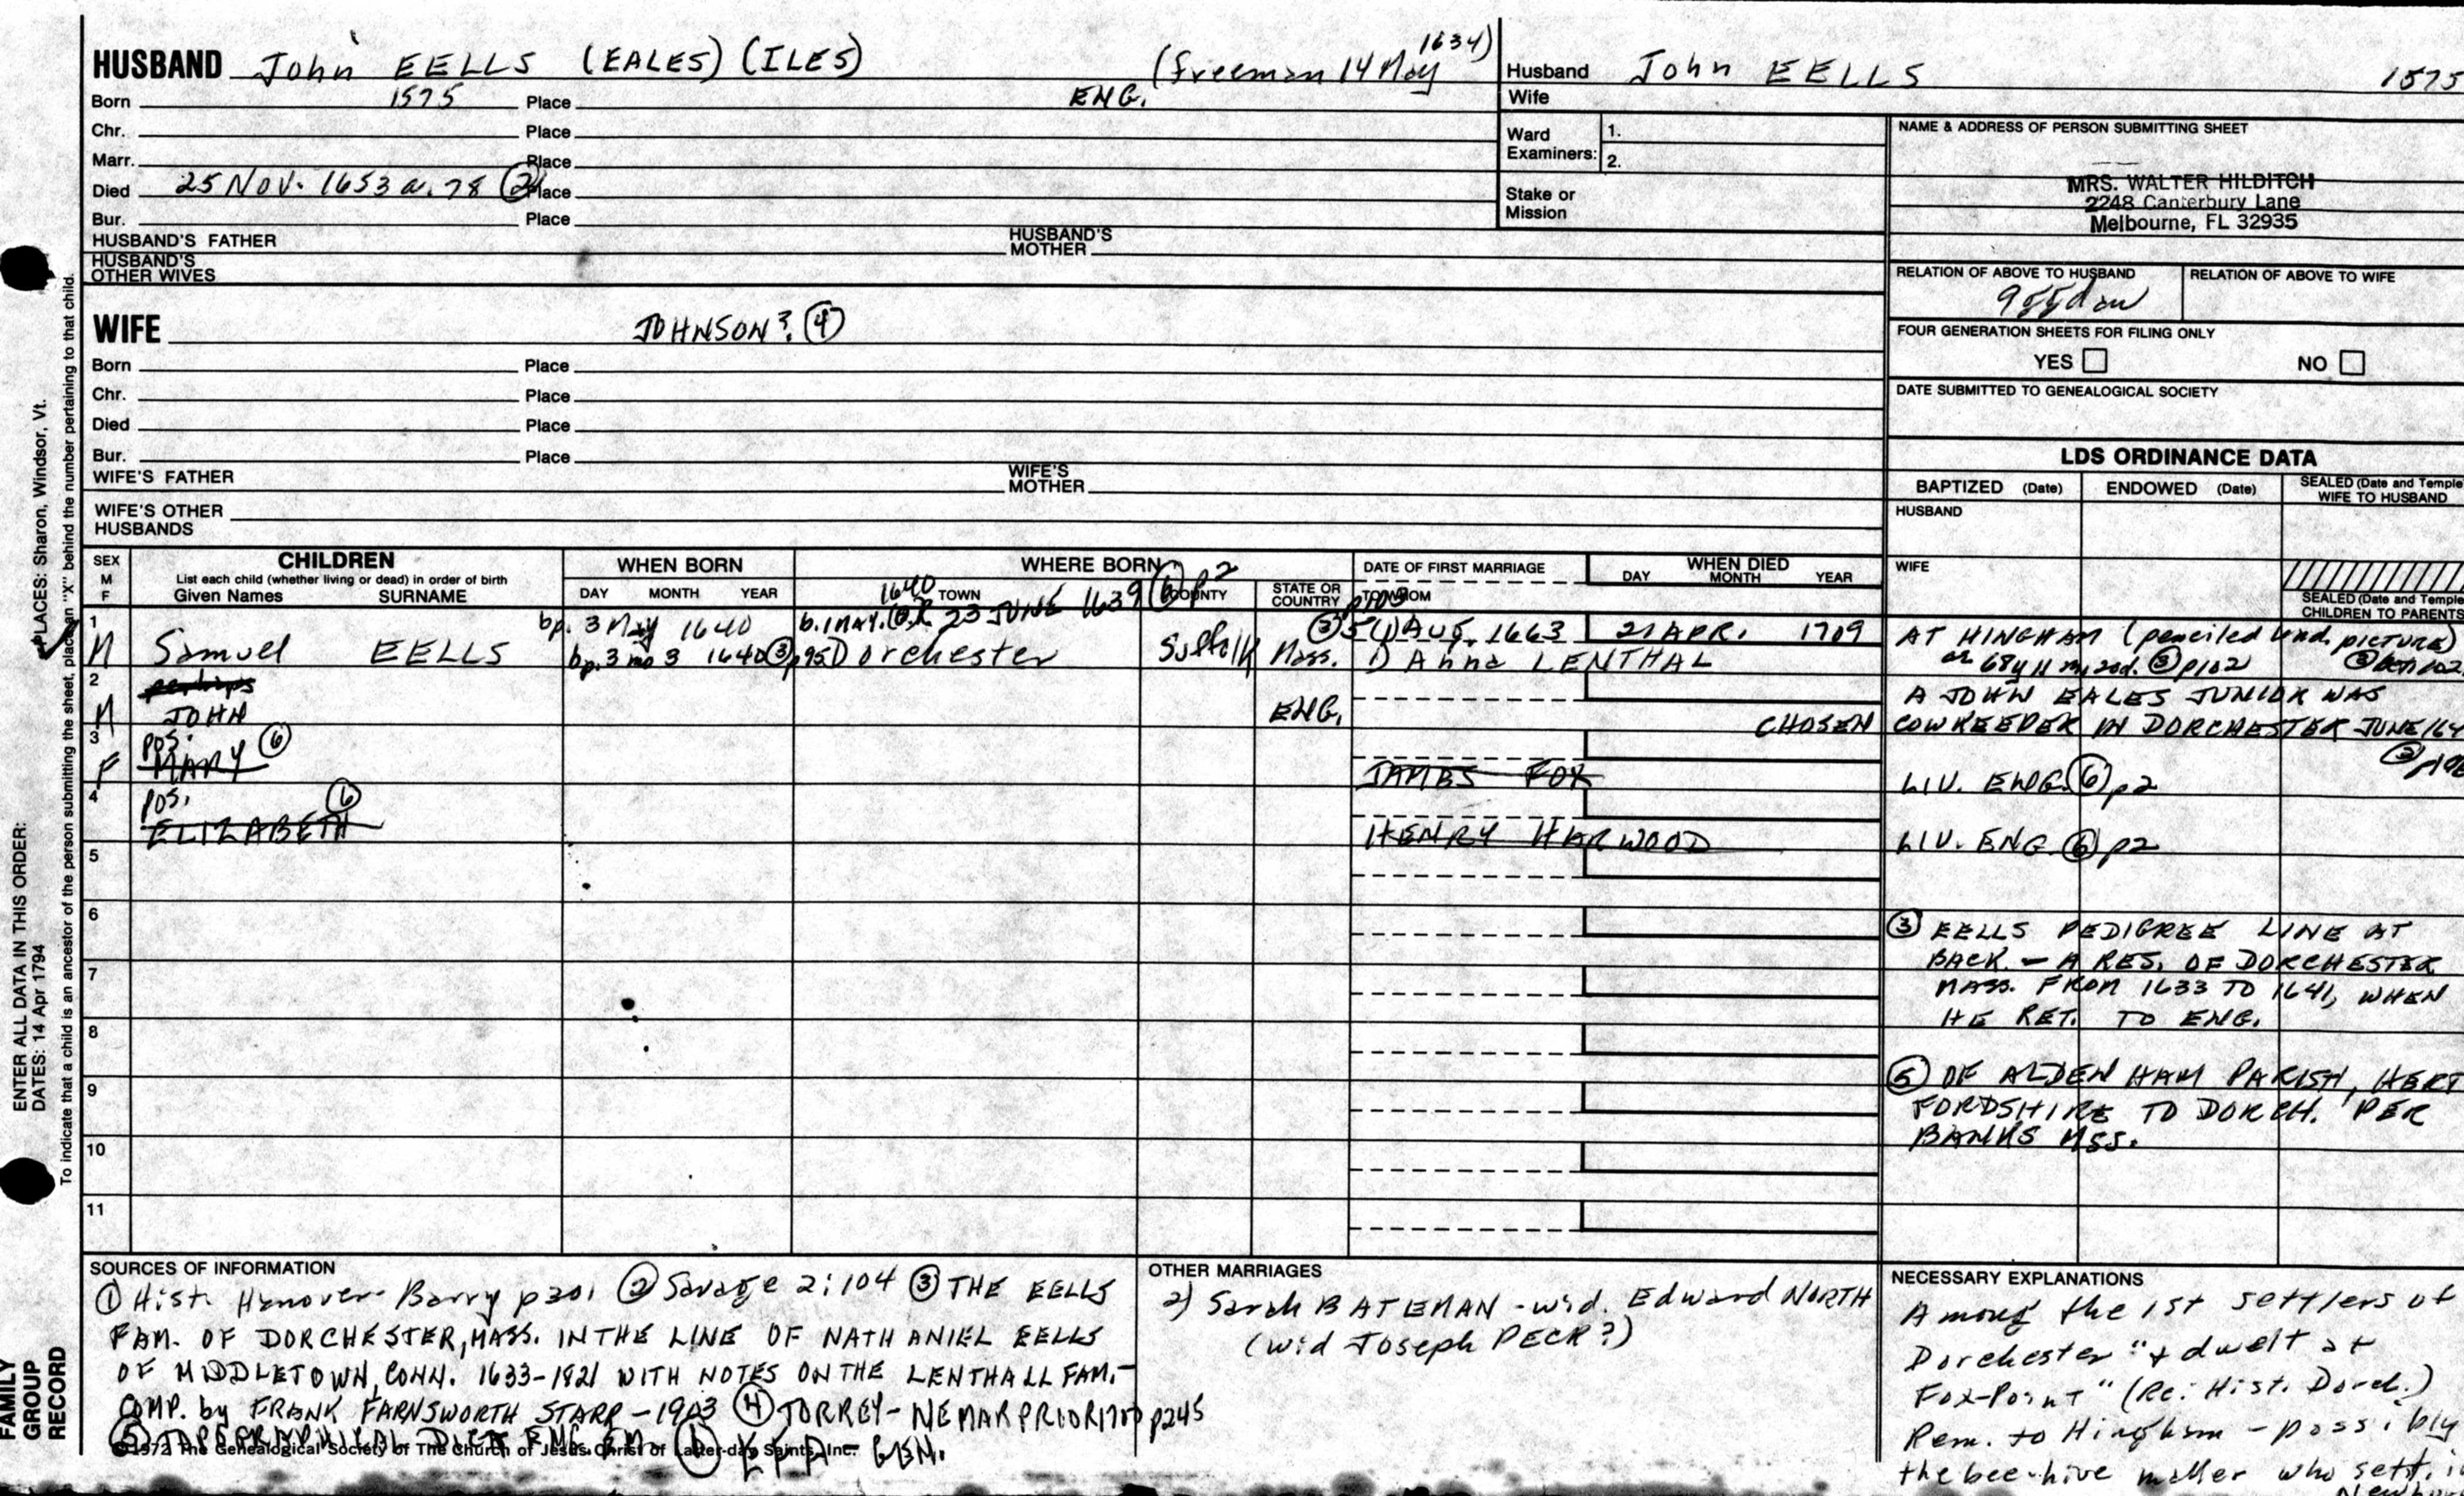 HUSBAND John EELLS (EALES) (ILES) (freeman 14 May 1634)
Born 1575 Place ENG.
Chr. Place
Marr. Place
Died 25 NOV. 1653 a. 78 ② Place
Bur. Place
HUSBAND'S FATHER HUSBAND'S MOTHER
HUSBAND'S OTHER WIVES
WIFE JOHNSON? ④
Born Place
Chr. Place
Died Place
Bur. Place
WIFE'S FATHER WIFE'S MOTHER
WIFE'S OTHER HUSBANDS
Husband John EELLS 1575
Wife
Ward Examiners: 1.
2.
Stake or Mission
NAME & ADDRESS OF PERSON SUBMITTING SHEET
MRS. WALTER HILDITCH
2248 Canterbury Lane
Melbourne, FL 32935
RELATION OF ABOVE TO HUSBAND RELATION OF ABOVE TO WIFE
FOUR GENERATION SHEETS FOR FILING ONLY
YES NO
DATE SUBMITTED TO GENEALOGICAL SOCIETY
LDS ORDINANCE DATA
BAPTIZED (Date) ENDOWED (Date) SEALED (Date and Temple
WIFE TO HUSBAND
HUSBAND
WIFE
SEALED (Date and Temple
CHILDREN TO PARENTS
SEX M F CHILDREN WHEN BORN WHERE BORN DATE OF FIRST MARRIAGE WHEN DIED
List each child (whether living or dead) in order of birth
Given Names SURNAME DAY MONTH YEAR TOWN COUNTY STATE OR COUNTRY TO WHOM DAY MONTH YEAR
1640 ⑥ p2
1 bp. 3 May 1640 b. 1 MAY. OR 23 JUNE 1639 ③ 5 (1) AUG. 1663 21 APR. 1709 AT HINGHAM (penciled und. picture)
M Samuel EELLS bp. 3 mo 3 1640 ③ p95 Dorchester Suffolk Mass. 1) Anna LENTHAL ae 68y 11 m, 20d. ③ p102
2 perhaps A JOHN EALES JUNIOR WAS
M JOHN ENG. CHOSEN COWKEEPER IN DORCHESTER JUNE 164
3 pos. ⑥
F MARY JAMES FOX LIV. ENG. ⑥ p2
4 pos. ⑥
ELIZABETH HENRY HARWOOD LIV. ENG. ⑥ p2
5
6
7
8
9
10
11
③ EELLS PEDIGREE LINE AT
BACK. - A RES. OF DORCHESTER
MASS. FROM 1633 TO 1641, WHEN
HE RET. TO ENG.
⑤ OF ALDENHAM PARISH, HERT
FORDSHIRE TO DORCH. PER
BANKS MSS.
SOURCES OF INFORMATION
① Hist. Hanover - Barry p301 ② Savage 2:104 ③ THE EELLS
FAM. OF DORCHESTER, MASS. IN THE LINE OF NATHANIEL EELLS
OF MIDDLETOWN, CONN. 1633-1821 WITH NOTES ON THE LENTHALL FAM.-
COMP. by FRANK FARNSWORTH STARR - 1903 ④ TORREY - NE MAR PRIOR 1700 p245
⑤ TOPOGRAPHICAL DICT. ENG. EM. ⑥ GEN.
© 1972 The Genealogical Society of The Church of Jesus Christ of Latter-day Saints, Inc.
OTHER MARRIAGES
2) Sarah BATEMAN - wid. Edward NORTH
(wid Joseph PECK?)
NECESSARY EXPLANATIONS
Among the 1st settlers of
Dorchester "& dwelt at
Fox-Point" (Re: Hist. Dorch.)
Rem. to Hingham - possibly
the bee-hive maker who sett. i
Newbur
ENTER ALL DATA IN THIS ORDER:
PLACES: Sharon, Windsor, Vt.
DATES: 14 Apr 1794
To indicate that a child is an ancestor of the person submitting the sheet, place an "X" behind the number pertaining to that child.
FAMILY
GROUP
RECORD